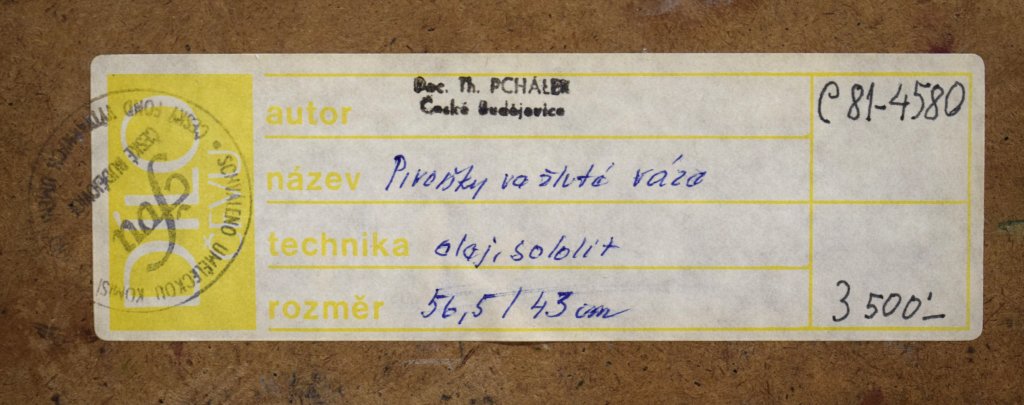 Doc. Th. PCHÁLEK
České Budějovice
autor
C 81-4580
název Pivoňky ve žluté váze
technika olej, sololit
rozměr 56,5/43 cm
3 500'-
DÍLO
ČESKÝ FOND VÝTVARNÝCH UMĚNÍ • SCHVÁLENO UMĚLECKOU KOMISÍ
ČESKÉ BUDĚJOVICE